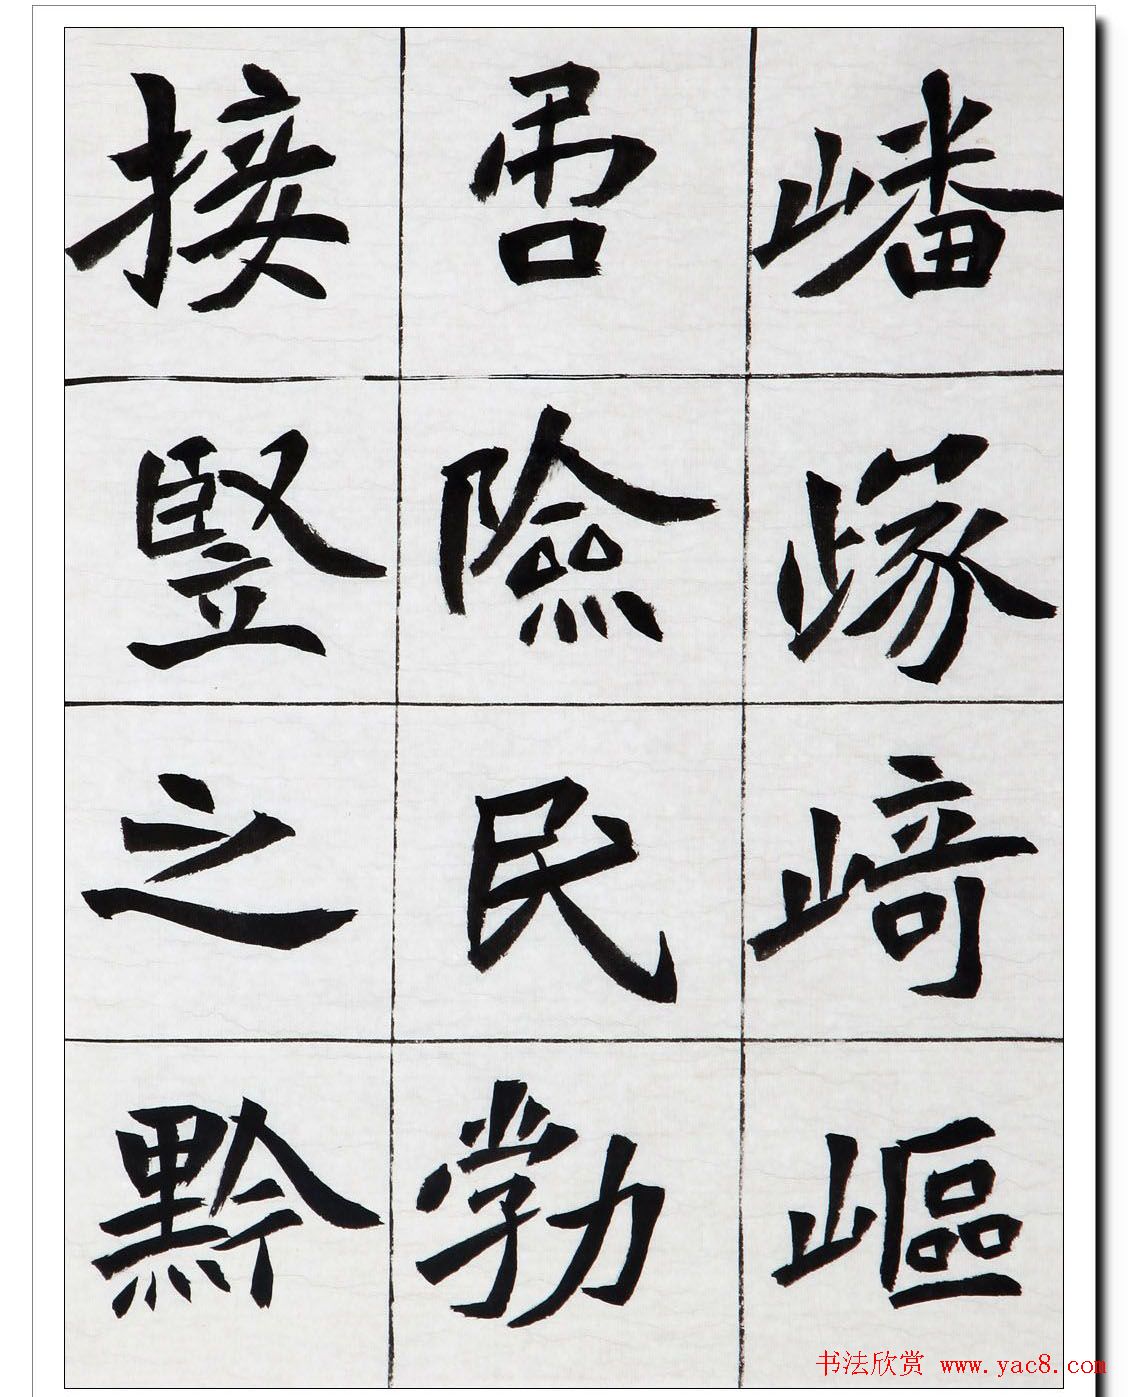 嶓崎嶇
險民勃
接竪之黔
书法欣赏 www.yac8.com